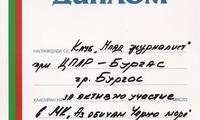 ДИПЛОМ
НАГРАЖДАВА СЕ Клуб „Млад журналист"
при ЦПЛР – Бургас
гр. Бургас
КЛАСИРАН НА за активно участие МЯСТО
В МК „Аз обичам Черно море"